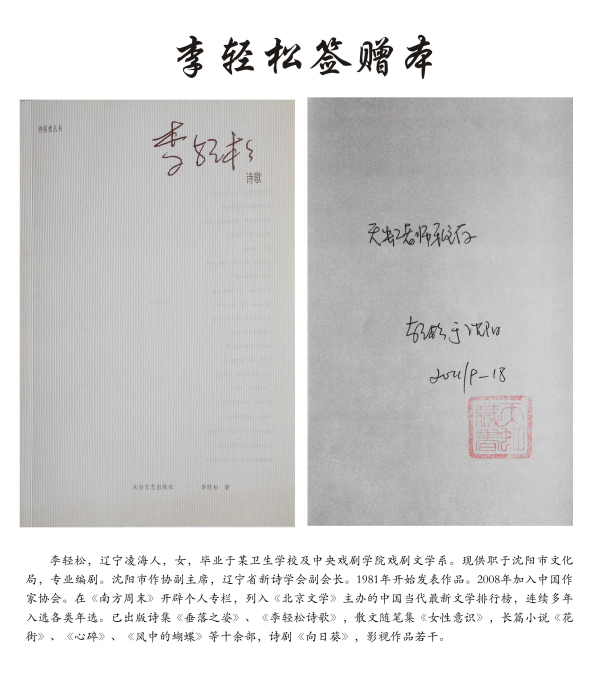 李轻松签赠本
诗探索丛书
李轻松
诗歌
大众文艺出版社 李轻松 著
天虹老师
轻松于沈阳
2011/9-18
天虹
藏書
李轻松，辽宁凌海人，女，毕业于某卫生学校及中央戏剧学院戏剧文学系。现供职于沈阳市文化
局，专业编剧。沈阳市作协副主席，辽宁省新诗学会副会长。1981年开始发表作品。2008年加入中国作
家协会。在《南方周末》开辟个人专栏，列入《北京文学》主办的中国当代最新文学排行榜，连续多年
入选各类年选。已出版诗集《垂落之姿》、《李轻松诗歌》，散文随笔集《女性意识》，长篇小说《花
街》、《心碎》、《风中的蝴蝶》等十余部，诗剧《向日葵》，影视作品若干。